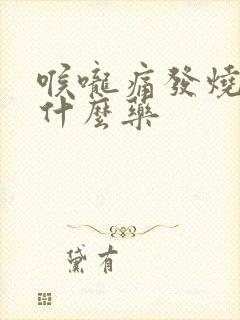 喉嚨痛發燒
什麼藥
黛有